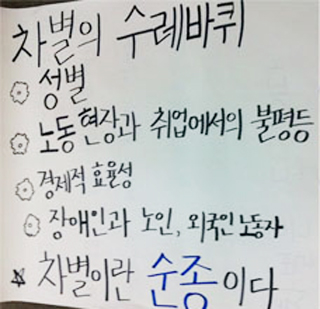 차별의 수레바퀴
성별
노동현장과 취업에서의 불평등
경제적 효율성
장애인과 노인, 외국인 노동자
차별이란 순종이다